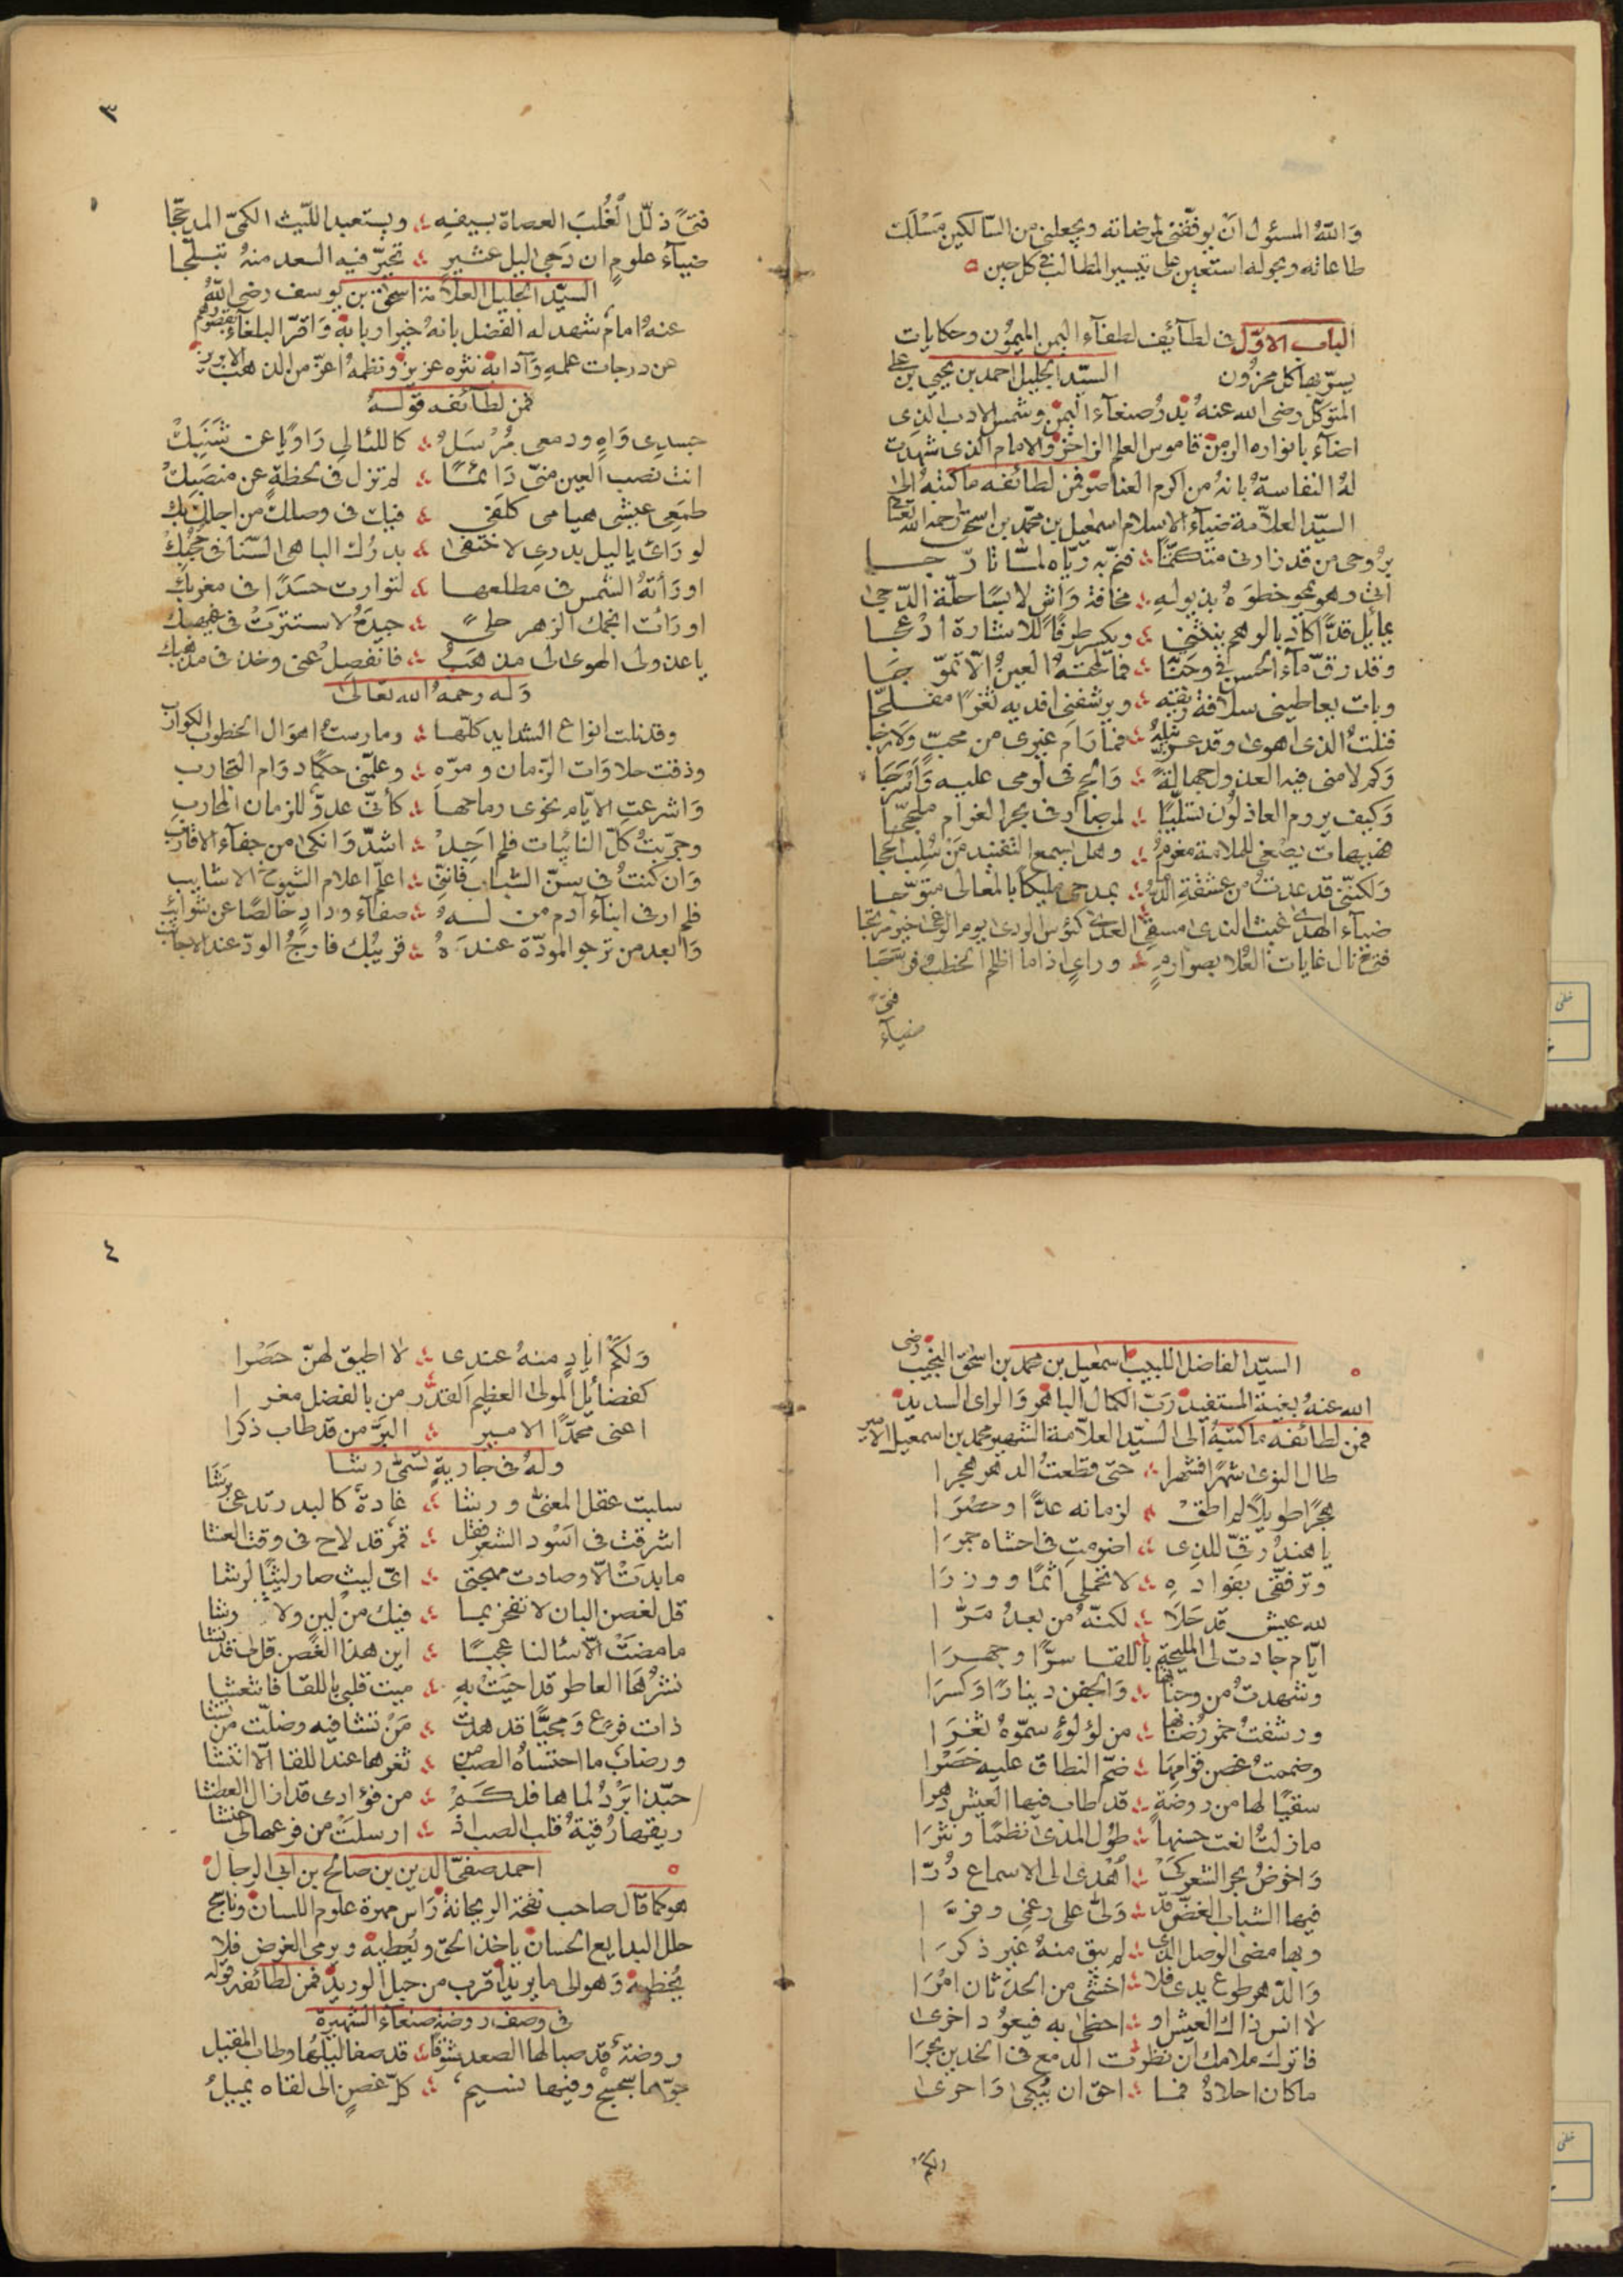 والله المسئول ان يوفقني لمرضاته ويجعلني من السالكين مسلك
طاعاته وبحوله استعين على تيسير المطالب في كل حين
الباب الاول في لطآئيف لطفآء اليمن الميمون وحكايات
يسر بها كل محزون السيد الجليل احمد بن يحيى بن علي
المتوكل رضى الله عنه بدر صنعآء اليمن وشمس الادب الذى
اضآء بانواره الزمن قاموس العلم الزاخر والامام الذى شهدت
له النفاسة بانه من اكرم العناصر فمن لطائفه ما كتبه الى
السيد العلامة ضيآء الاسلام اسمعيل بن محمد بن اسحق رحمه الله تعالى
بروحى من قد زارنى متكتما فنم به رياه لما تارجا
اتى وهو يمحو خطوه بذيوله مخافة واش لابسا حلة الدجى
يمايل قدا كاد بالوهم ينثني ويكسر طرفا للاشارة ادعجا
وقد رق مآء الحسن في وجناته فما لمحته العين الا تموجا
وبات يعاطيني سلافة ريقه ويرشفنى افديه ثغرا مفلجا
فنلت الذى اهوى وقد عز نيله فما رام غيرى من محب ولا رجا
وكم لامنى فيه العذول جهالة والجم في لومى عليه واسرجا
وكيف يروم العاذلون تسليا لمن صار في بحر الغرام ملججا
فهيهات يصغى للملامة مغرم وهل يسمع التفنيد من سلب الحجا
ولكننى قد عدت من عشقة بمدحى مليكا بالمعالى متوجا
ضيآء الهدى غيث الندى مسقى العدى كئوس الردى يوم الوغى خير مرتجا
فتى نال غايات العلا بصوارم وراى اذا ما اظلم الخطب فرجا
فتى
ضيآء
٣
فتى ذلل الغلب العصاة بسيفه ويستعبد الليث الكمى المدججا
ضيآء علوم ان دجى ليل عثير تحير فيه السعد منه تبلجا
السيد الجليل العلامة اسحق بن يوسف رضى الله
عنه امام شهد له الفضل بانه خير اربابه واقر البلغآء بقصورهم
عن درجات علمه وآدابه نثره عزيز ونظمه اعز من الذهب الابريز
فمن لطائفه قوله
جسدى واه ودمعى مرسل كاللئالى راويا عن شنبك
انت نصب العين منى دائما لم تزل في لحظة عن منصبك
طمعى عيشى هيامى كلفى فيك فى وصلك من اجلك بك
لو راى ياليل بدرى لاختفى بدرك الباهى السنا فى حجبك
او راته الشمس فى مطلعها لتوارت حسدا فى مغربك
او رات انجمك الزهر حلى جيده لاستترت فى غيهبك
ياعذولى الهوى لى مذهب فانفصل عنى وخذ فى مذهبك
وله رحمه الله تعالى
وقد نلت انواع الشدايد كلها ومارست اهوال الخطوب الكوارب
وذقت حلاوات الزمان ومره وعلمنى حكما دوام التجارب
واشرعت الايام نحوى رماحها كأنى عدو للزمان المحارب
وجربت كل النائبات فلم اجد اشد وانكى من جفآء الاقارب
وان كنت في سن الشباب فاننى اعلم اعلام الشيوخ الاشايب
فلم ار فى ابنآء آدم من له صفآء وداد خالصا عن شوائب
وابعد من ترجو المودة عنده قريبك فارج الود عند الاجانب
السيد الفاضل اللبيب اسمعيل بن محمد بن اسحق النجيب رضى
الله عنه بغية المستفيد رب الكمال الباهر والراى السديد
فمن لطائفه ما كتبه الى السيد العلامة الشهير محمد بن اسمعيل الامير
طال النوى شهرا فشهرا حتى قطعت الدهر هجرا
هجرا طويلا لم اطق لزمانه عدا وحصرا
يا هند رقى للذى اضرمت في احشاه جمرا
وترفقى بفواده لا تحملى اثما ووزرا
لله عيش قد حلا لكنه من بعد مرا
ايام جادت لى المليحة باللقا سرا وجهرا
وشهدت من وجناتها والجفن دينارا وكسرا
ورشفت خمر رضابها من لؤلؤ سموه ثغرا
وضممت غصن قوامها ضم النطاق عليه خصرا
سقيا لها من روضة قد طاب فيها العيش دهرا
مازلت انعت حسنها طول المدى نظما ونثرا
واخوض بحر الشعر كى اهدى الى الاسماع درا
فيها الشباب الغض قد ولى على رغمى وفرا
وبها مضى الوصل الذى لم يبق منه غير ذكرا
والدهر طوع يدى فلا اخشى من الحدثان امرا
لا انس ذاك العيش او احظى به فيعود اخرى
فاترك ملامك ان نظرت الدمع فى الخدين بحرا
ما كان احلاه فما احق ان يبكى واحرى
ولكم
٤
ولكم اياد منه عندى لا اطيق لهن حصرا
كفضائل المولى العظيم القدر من بالفضل مغرا
اعنى محمدا الامير البر من قد طاب ذكرا
وله فى جارية تسمى رشا
سلبت عقل المعنى ورشا غادة كالبدر تدعى برشا
اشرقت فى اسود الشعر فقل قمر قد لاح فى وقت العشا
ما بدت الا وصادت مهجتى اى ليث صار ليثا لرشا
قل لغصن البان لا تفخر بما فيك من لين ولا رشا
ما مضت الا سئالنا عجبا اين هذا الغصن قل لى قد نشا
نشرها العاطر قد احيت به ميت قلبى باللقا فانتعشا
ذات فرع ومحيا قد هدت من تشا فيه وضلت من تشا
ورضاب ما احتساه الصب من ثغرها عند اللقا الا انتشا
حبذا برد لماها فلكم من فؤادى قد ازال العطشا
ريقها رقية قلب الصب اذ ارسلت من فرعها لى حنشا
احمد صفى الدين بن صالح بن ابى الرجال
هو كما قال صاحب نفحة الريحانة راس مهرة علوم اللسان وناسج
حلل البدايع الحسان ياخذ الحق ويعطيه ويرمى الغرض فلا
يخطيه وهو الى ما يريد اقرب من حبل الوريد فمن لطائفه قوله
فى وصف روضة صنعآء الشهيرة
روضة قد صبا لها الصعد شوقا قد صفا ليلها وطاب المقيل
جوها سجسج وفيها نسيم كل غصن الى لقاه يميل